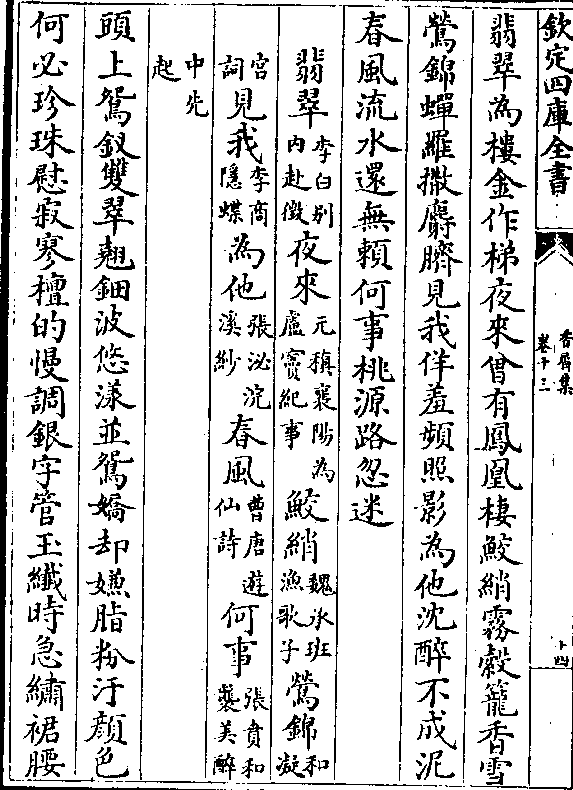 欽定四庫全書
香屑集
卷十三
十四
翡翠為樓金作梯夜來曾有鳳凰棲鮫綃霧縠籠香雪
鶯錦蟬羅撒麝臍見我佯羞頻照影為他沈醉不成泥
春風流水還無賴何事桃源路忽迷
翡翠李白别内赴徵夜來元稹襄陽為盧竇紀事鮫綃魏承班漁歌子鶯錦和凝
宮詞見我李商隱蝶為他張泌浣溪紗春風曹唐遊仙詩何事張賁和襲美醉
中先起
頭上鴛釵雙翠翹鈿波悠漾並鴛嬌却嫌脂粉汙顔色
何必珍珠慰寂寥檀的慢調銀字管玉纖時急繡裙腰